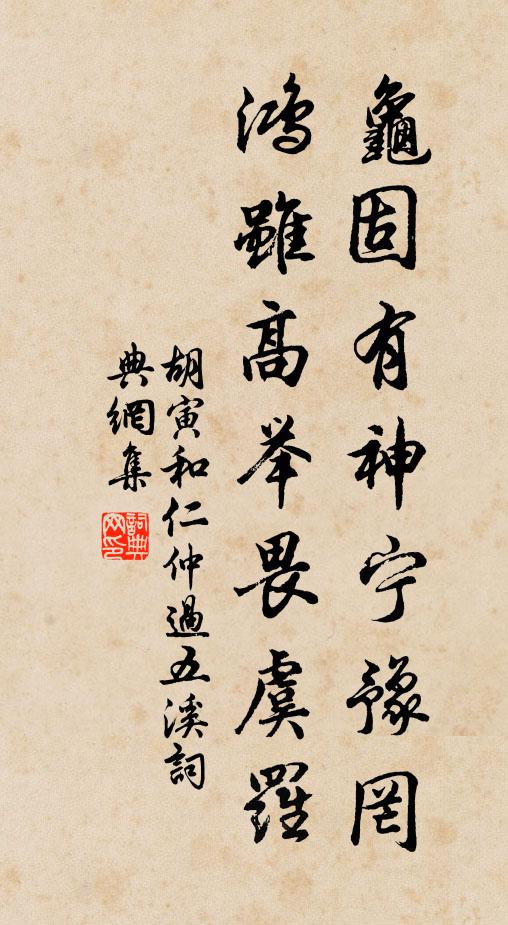 龜固有神宁豫罔
鴻雖高举畏虞羅
胡寅和仁仲過五溪詞
典網集
詞典網印